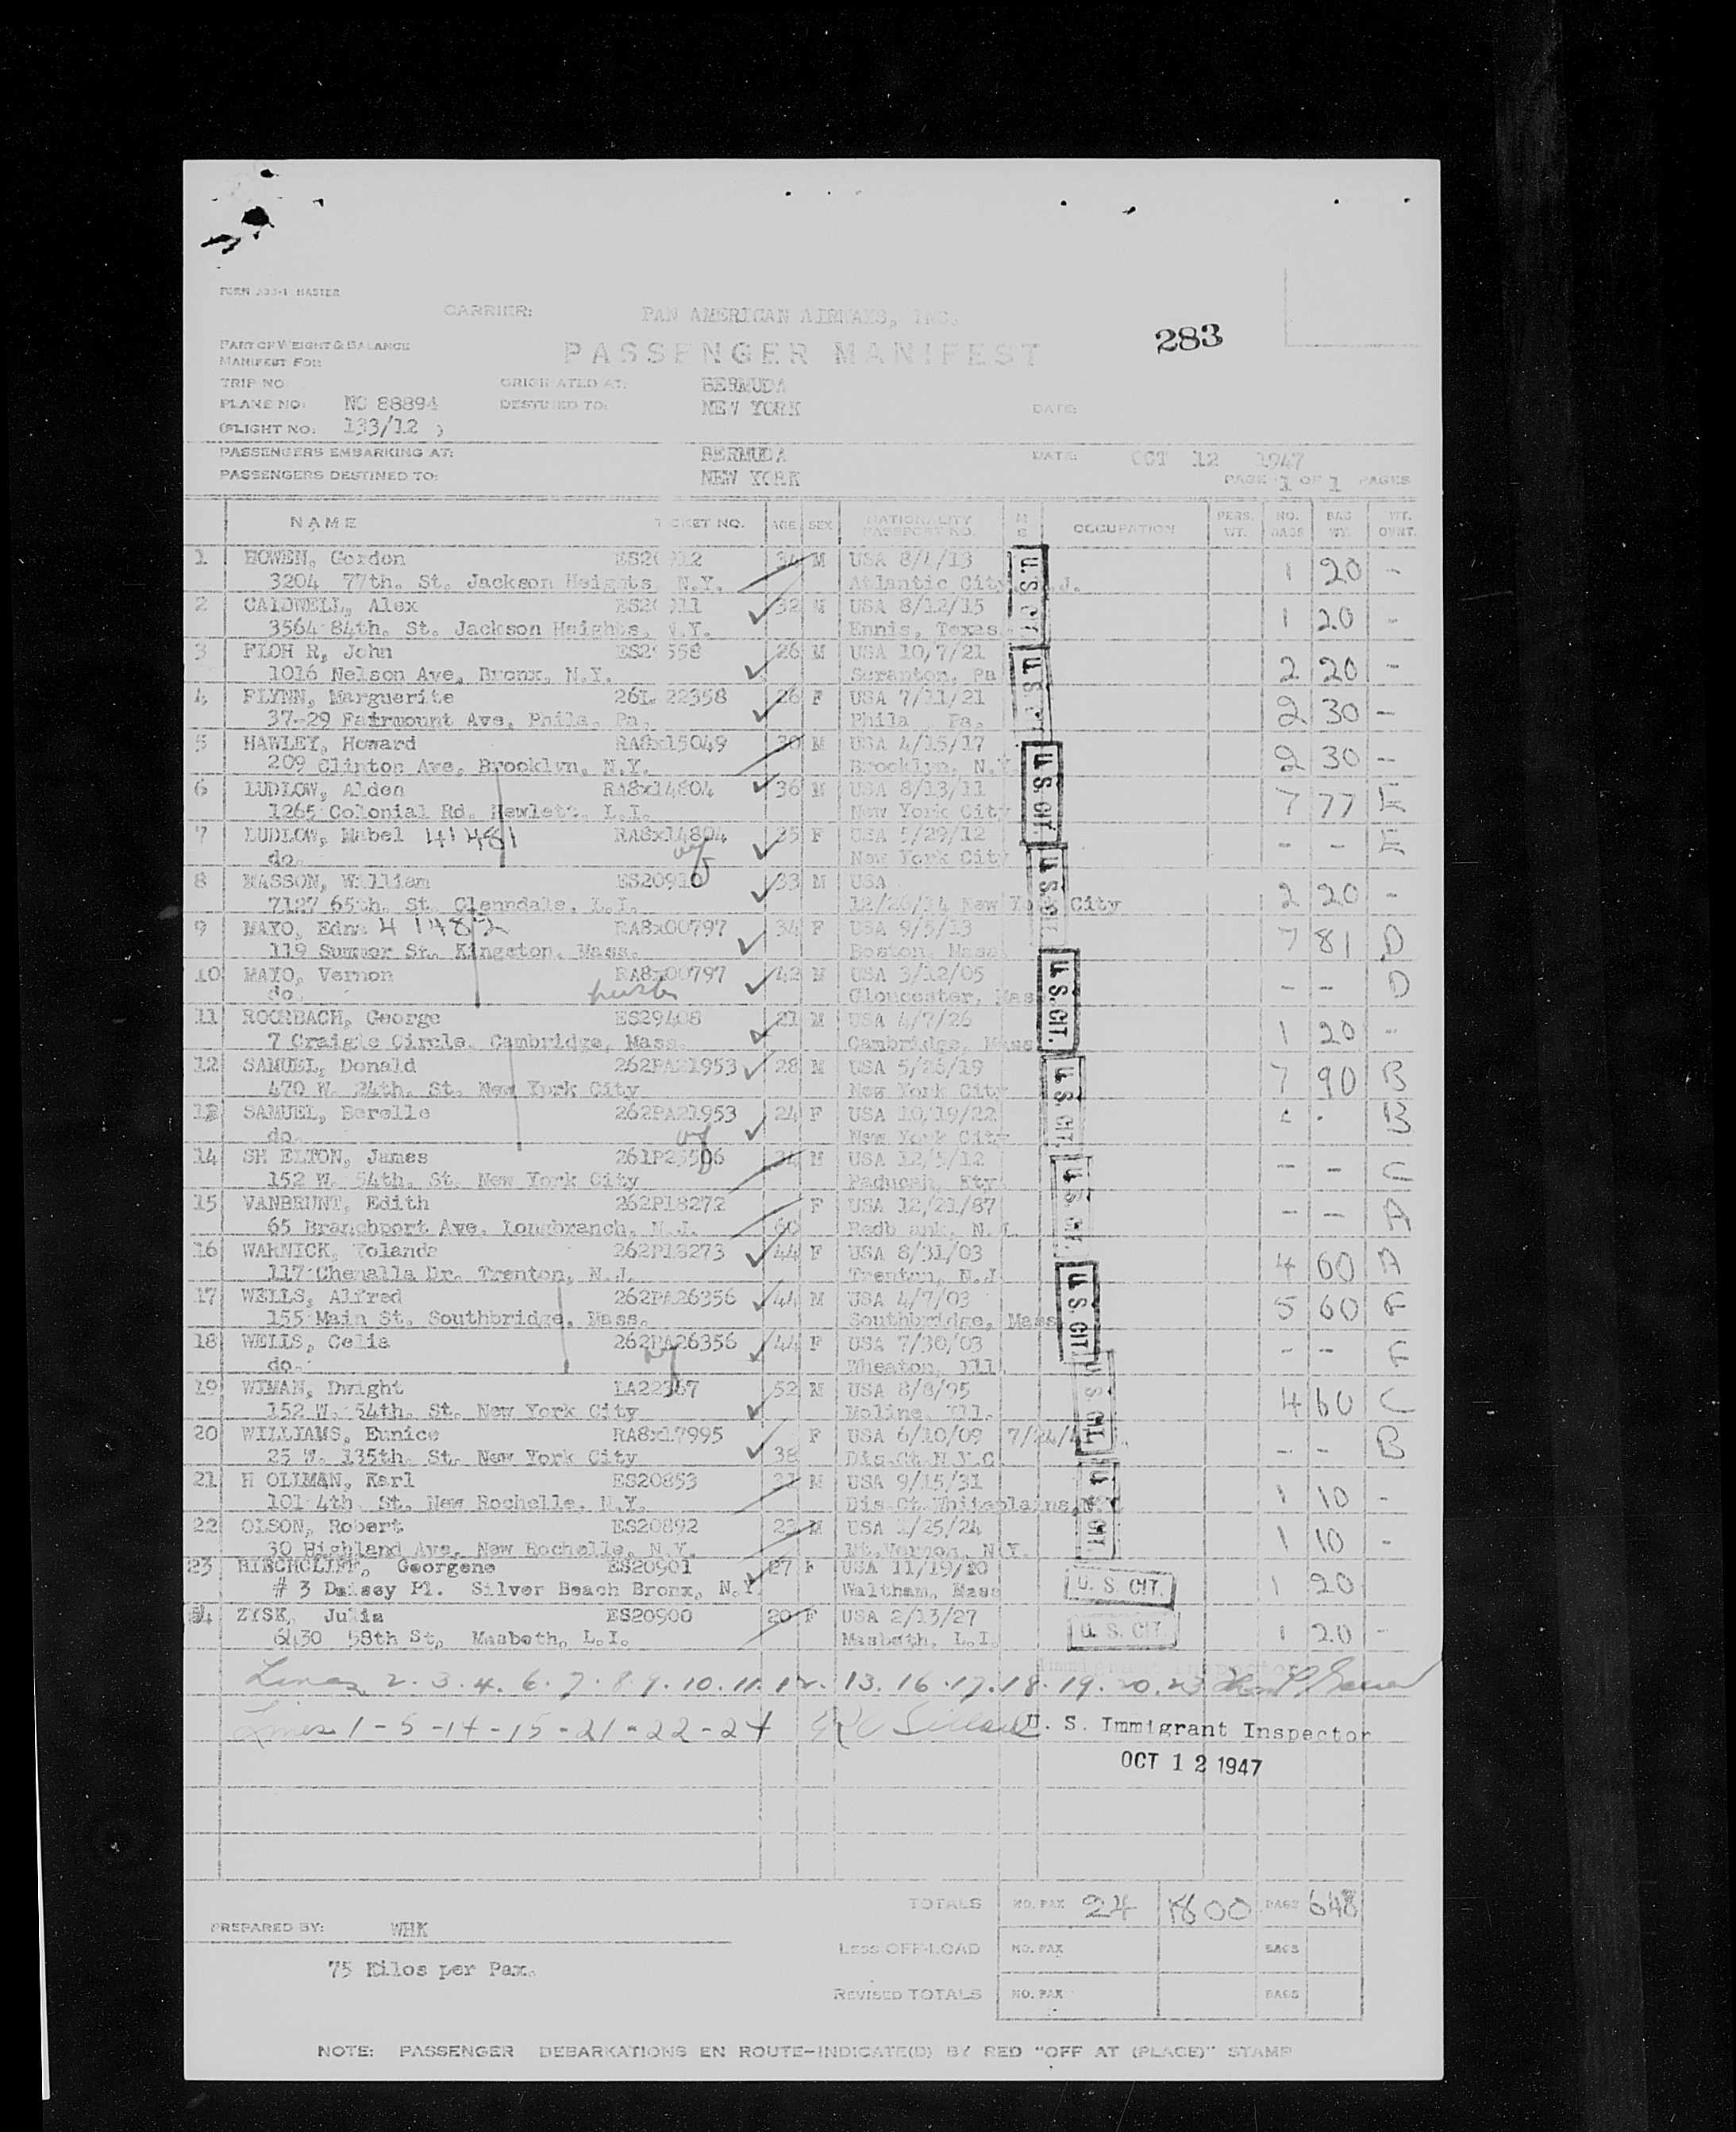 FORM MASTER
CARRIER: PAN AMERICAN AIRWAYS, INC.
PASSENGER MANIFEST 283
PART OF WEIGHT & BALANCE
MANIFEST FOR:
TRIP NO ORIGINATED AT: BERMUDA
PLANE NO: NC 88894 DESTINED TO: NEW YORK DATE:
(FLIGHT NO: 133/12 )
PASSENGERS EMBARKING AT: BERMUDA DATE: OCT 12 1947
PASSENGERS DESTINED TO: NEW YORK PAGE 1 OF 1 PAGES
NAME TICKET NO. AGE SEX NATIONALITY PASSPORT NO. M S OCCUPATION PERS. WT. NO. BAGS BAG WT. WT. CONT.
1 Gordon M USA 8/4/13 1 20 -
3204 77th. St. Jackson Heights N.Y. Atlantic City J.
2 CALDWELL, Alex 32 M USA 8/12/15 1 20 -
3564 84th. St. Jackson Heights, N.Y. Ennis, Texas
3 FLOH R, John 26 M USA 10/7/21 2 20 -
1016 Nelson Ave, Bronx, N.Y. Scranton, Pa
4 FLYNN, Marguerite 22358 26 F USA 7/11/21 2 30 -
37-29 Fairmount Ave, Phila, Pa. Phila Pa.
5 HAWLEY, Howard RA8x15049 30 M USA 4/15/17 2 30 -
209 Clinton Ave, Brooklyn, N.Y. Brooklyn, N.Y.
6 LUDLOW, Alden RA8x14804 36 M USA 8/13/11 7 77 E
1265 Colonial Rd. Hewlett, L.I. New York City
7 LUDLOW, Mabel RA8x14804 35 F USA 5/29/12 - - E
do. New York City
8 MASSON, William ES20910 33 M USA 2 20 -
7127 65th. St. Glenndale, L.I. 12/26/14 New York City
9 MAYO, Edna 41482 RA8x00797 34 F USA 9/5/13 7 81 D
119 Summer St. Kingston, Mass. Boston, Mass
10 MAYO, Vernon RA8x00797 42 M USA 3/12/05 - - D
do. Gloucester, Mass
11 ROORBACH, George ES29408 21 M USA 4/7/26 1 20 -
7 Craigie Circle, Cambridge, Mass. Cambridge, Mass
12 SAMUEL, Donald 262PA21953 28 M USA 5/26/19 7 90 B
470 W. 24th. St. New York City New York City
13 SAMUEL, Berelle 262PA21953 24 F USA 10/19/22 - - B
do. New York City
14 SH ELTON, James 34 M USA 12/5/12 - - C
152 W. 54th. St. New York City Paducah, Kty
15 VANBRUNT, Edith 262P18272 60 F USA 12/21/87 - - A
65 Branchport Ave. Longbranch, N.J. Redb ank, N.J.
16 WARNICK, Yolanda 262P18273 44 F USA 8/31/03 4 60 A
117 Chenalla Dr. Trenton, N.J. Trenton, N.J
17 WELLS, Alfred 262PA26356 44 M USA 4/7/03 5 60 F
155 Main St. Southbridge, Mass. Southbridge, Mass
18 WELLS, Celia 262PA26356 44 F USA 7/30/03 - - F
do. Wheaton, Ill
19 WIMAN, Dwight 52 M USA 8/8/95 4 60 C
152 W. 54th. St. New York City Moline, Ill.
20 WILLIAMS, Eunice RA8x17995 38 F USA 6/10/09 - - B
25 W. 135th. St. New York City Dis.Ct.N.Y.C
21 H OLLMAN, Karl ES20853 31 M USA 9/15/31 1 10 -
101 4th St. New Rochelle, N.Y. Dis Ct.Whiteplains,N.Y.
22 OLSON, Robert ES20892 M USA 1/25/24 1 10 -
30 Highland Ave, New Rochelle, N.Y. Mt.Vernon, N.Y.
23 Georgene ES20901 27 F USA 11/19/20 U. S. CIT. 1 20
# 3 Daisey Pl. Silver Beach Bronx, N.Y. Waltham, Mass
ZYSK, Julia ES20900 20 F USA 2/13/27 U. S. CIT. 1 20 -
6430 58th St, Masbeth, L.I. Masbeth, L.I.
U. S. CIT.
U. S. CIT.
U. S. CIT.
U. S. CIT.
U. S. CIT.
U. S. CIT.
U. S. CIT.
U. S. CIT.
U. S. CIT.
U. S. CIT
Immigrant Inspector
Lines 2. 3. 4. 6. 7. 8. 9. 10. 11. 12. 13. 16. 17. 18. 19. 20. 23
Lines 1-5-14-15-21-22-24 U. S. Immigrant Inspector
OCT 12 1947
TOTALS NO. PAX 24 1800 BAGS 648
PREPARED BY: WHK
Less OFF-LOAD NO. PAX BAGS
75 Kilos per Pax.
Revised TOTALS NO. PAX BAGS
NOTE: PASSENGER DEBARKATIONS EN ROUTE-INDICATE(D) BY RED "OFF AT (PLACE)" STAMP